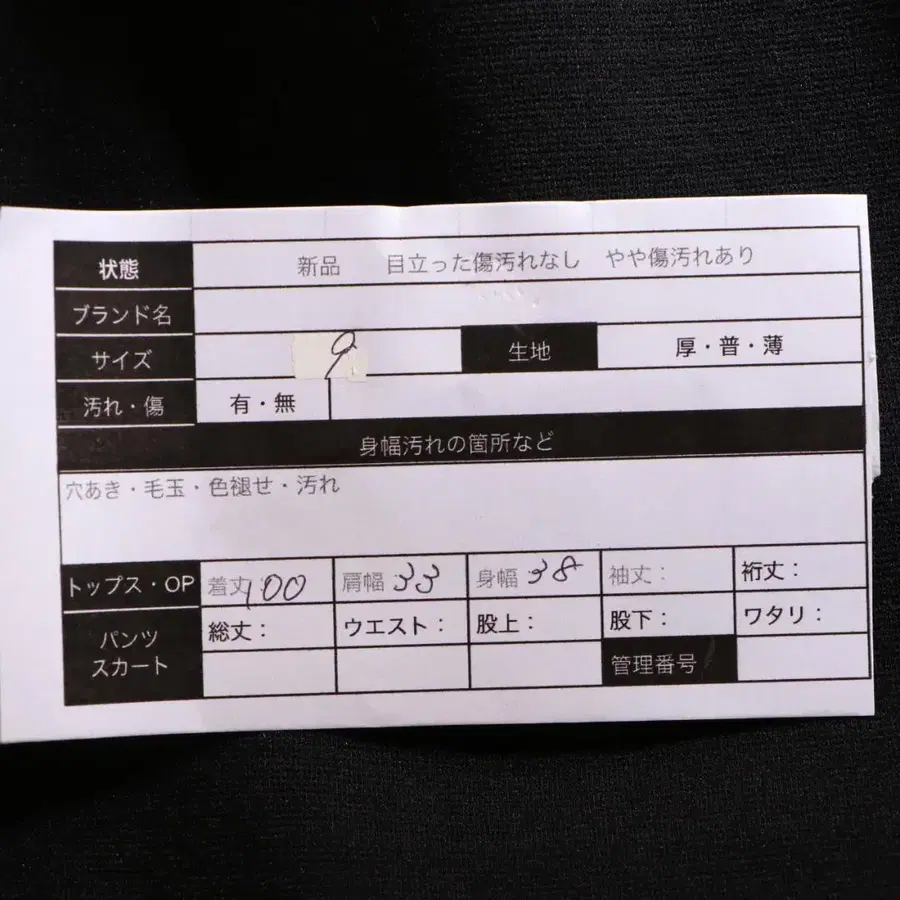 状態 新品 目立った傷汚れなし やや傷汚れあり
ブランド名
サイズ 9 生地 厚・普・薄
汚れ・傷 有・無
身幅汚れの箇所など
穴あき・毛玉・色褪せ・汚れ
トップス・OP 着丈: 100 肩幅 33 身幅 38 袖丈: 裄丈:
パンツ スカート 総丈: ウエスト: 股上: 股下: ワタリ:
管理番号